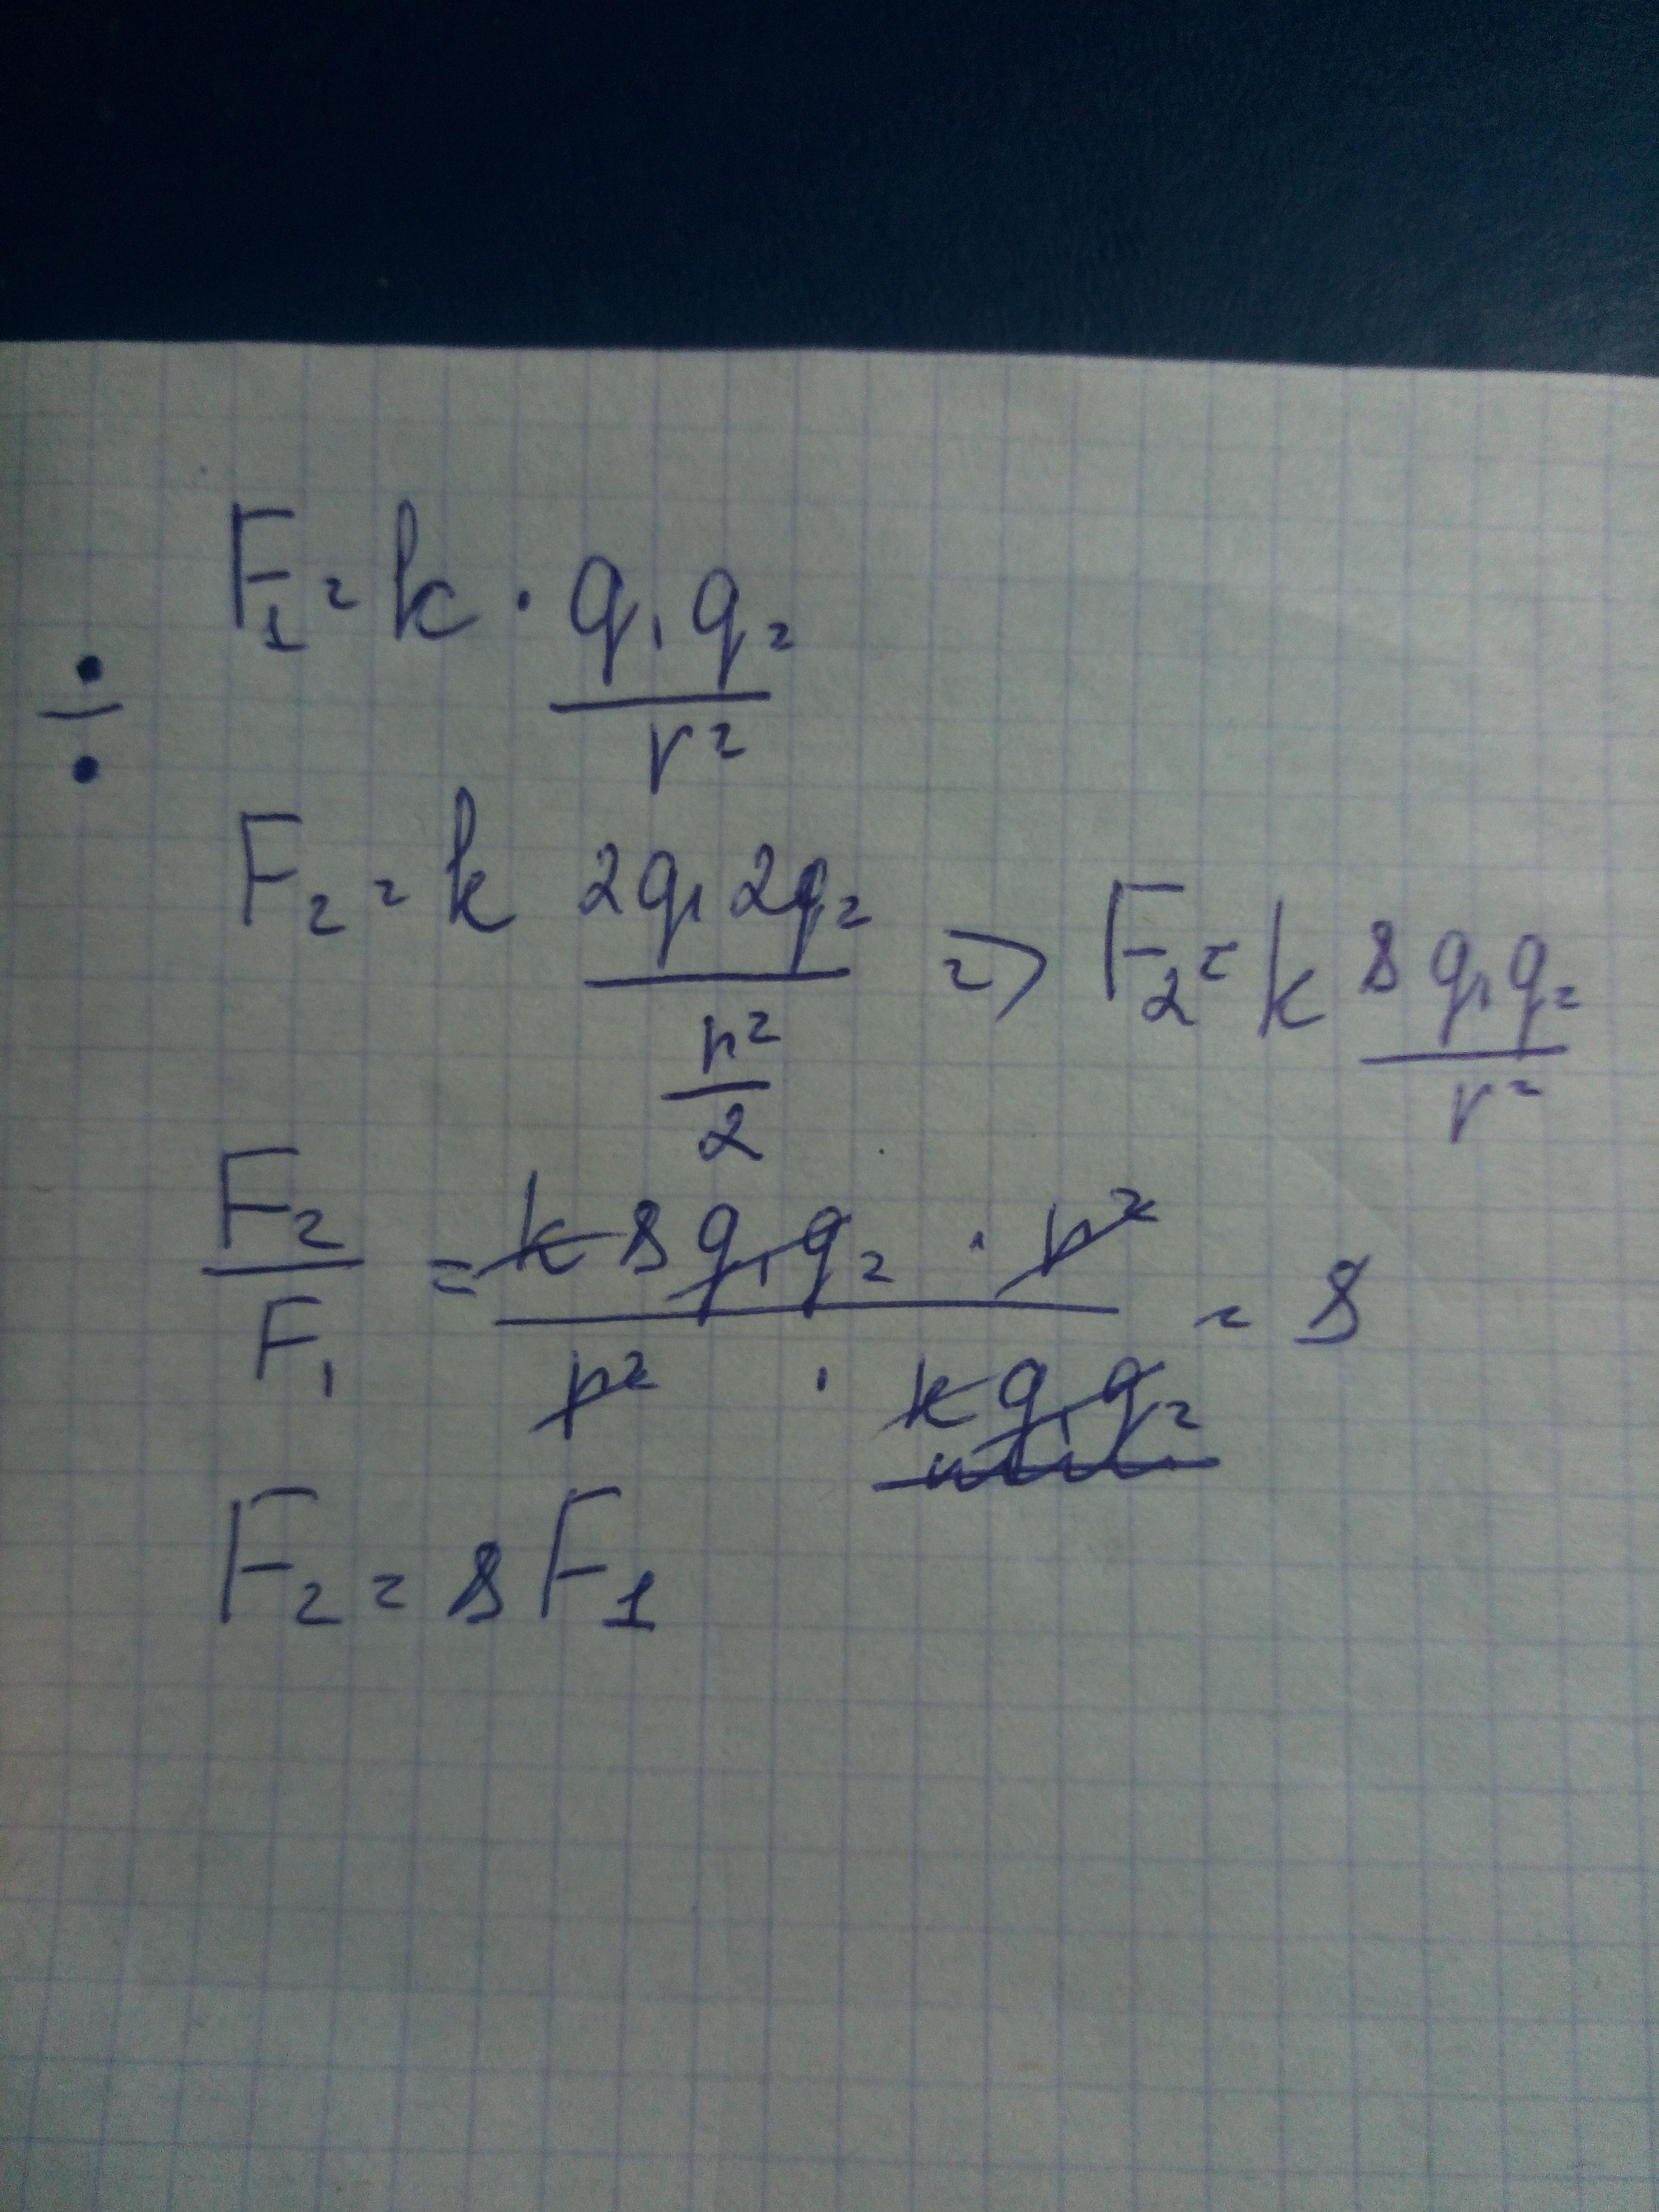 ÷
F₁ = k · q₁q₂ / r²
F₂ = k 2q₁2q₂ / (r²/2) => F₂ = k 8q₁q₂ / r²
F₂/F₁ = k8q₁q₂ · r² / r² · kq₁q₂ = 8
F₂ = 8F₁